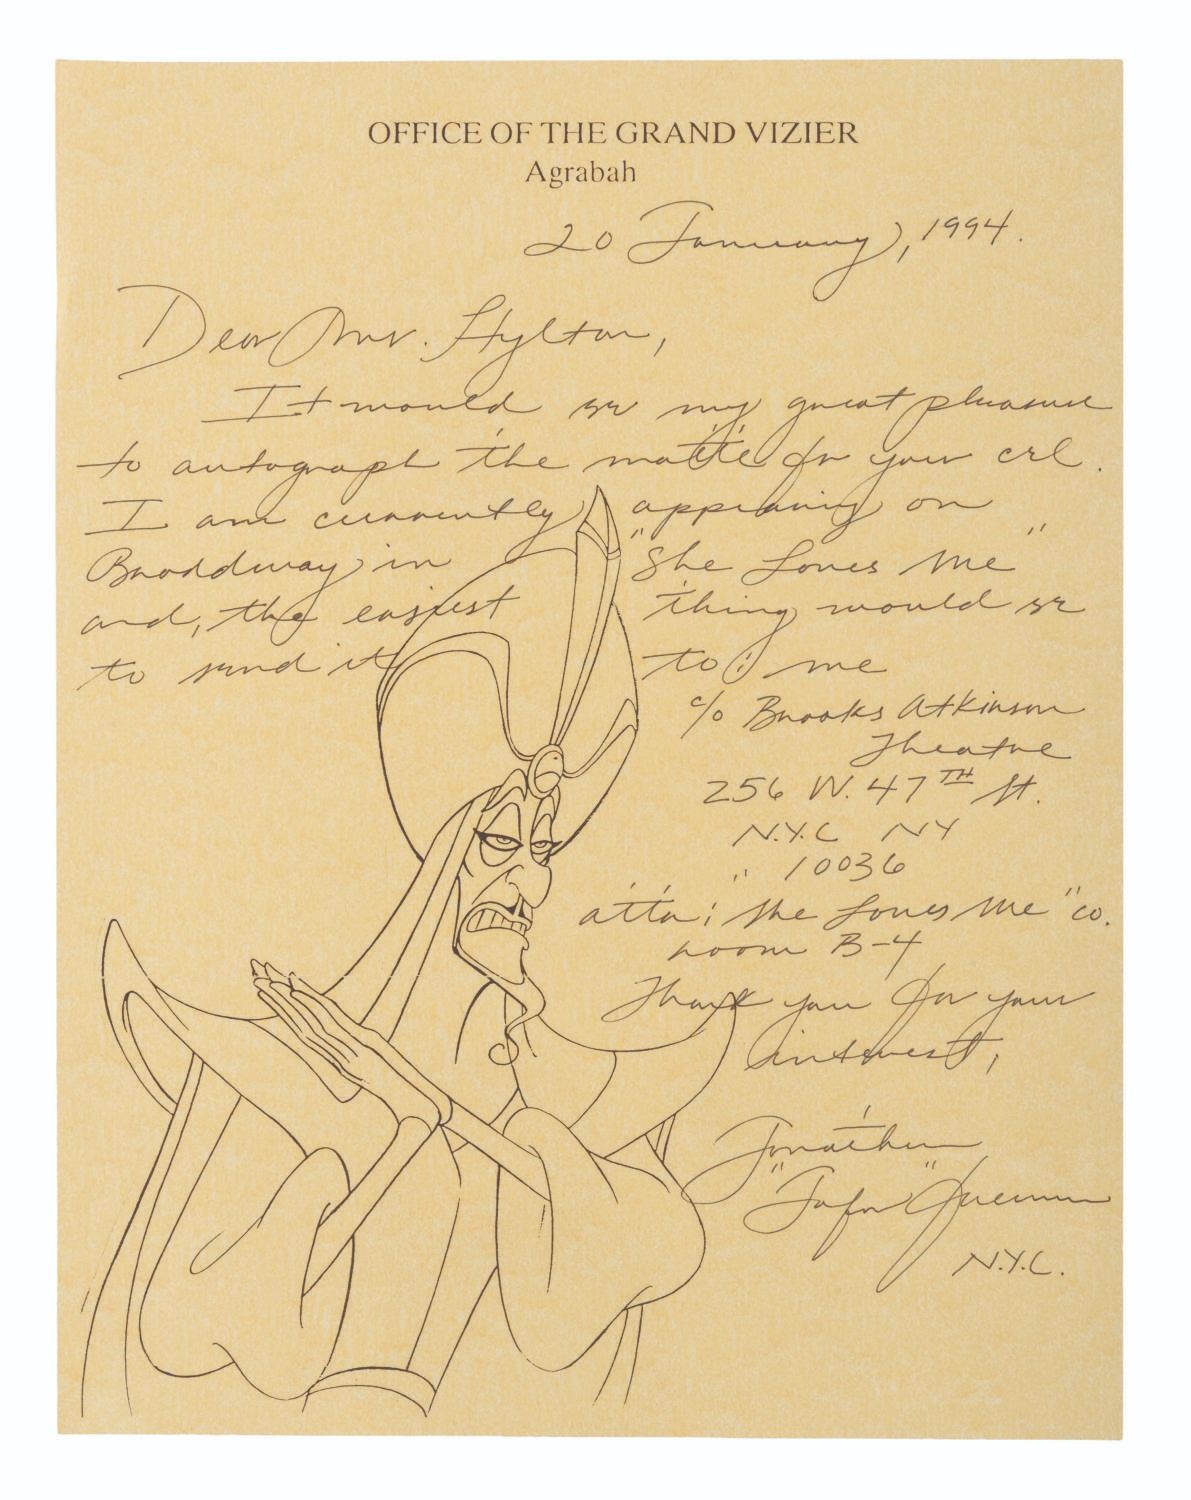 OFFICE OF THE GRAND VIZIER
Agrabah
20 January, 1994.
Dear Mr. Hylton,
It would be my great pleasure
to autograph the matte for your cel.
I am currently appearing on
Broadway in "She Loves Me"
and, the easiest thing would be
to send it to: me
c/o Brooks Atkinson
Theatre
256 W. 47TH St.
N.Y.C NY
" 10036
attn: "She Loves Me" co.
room B-4
Thank you for your
interest,
Jonathan
"Jafar" Freeman
N.Y.C.